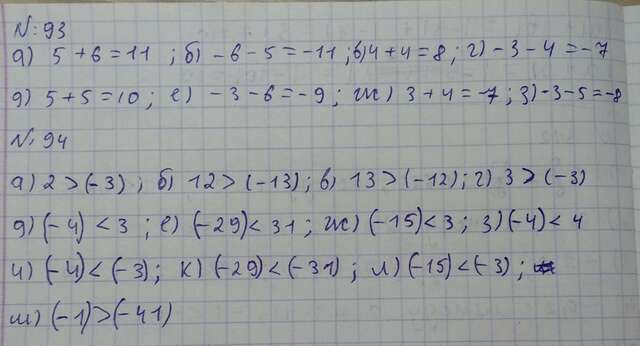 N: 93
а) 5 + 6 = 11 ; б) - 6 - 5 = -11 ; в) 4 + 4 = 8 ; г) - 3 - 4 = - 7
д) 5 + 5 = 10 ; е) - 3 - 6 = - 9 ; ж) 3 + 4 = - 7 ; з) - 3 - 5 = - 8
N: 94
а) 2 > (- 3) ; б) 12 > (- 13) ; в) 13 > (- 12) ; г) 3 > (- 3)
д) (- 4) < 3 ; е) (- 29) < 31 ; ж) (- 15) < 3 ; з) (- 4) < 4
и) (- 4) < (- 3) ; к) (- 29) < (- 31) ; л) (- 15) < (- 3) ;
м) (- 1) > (- 41)